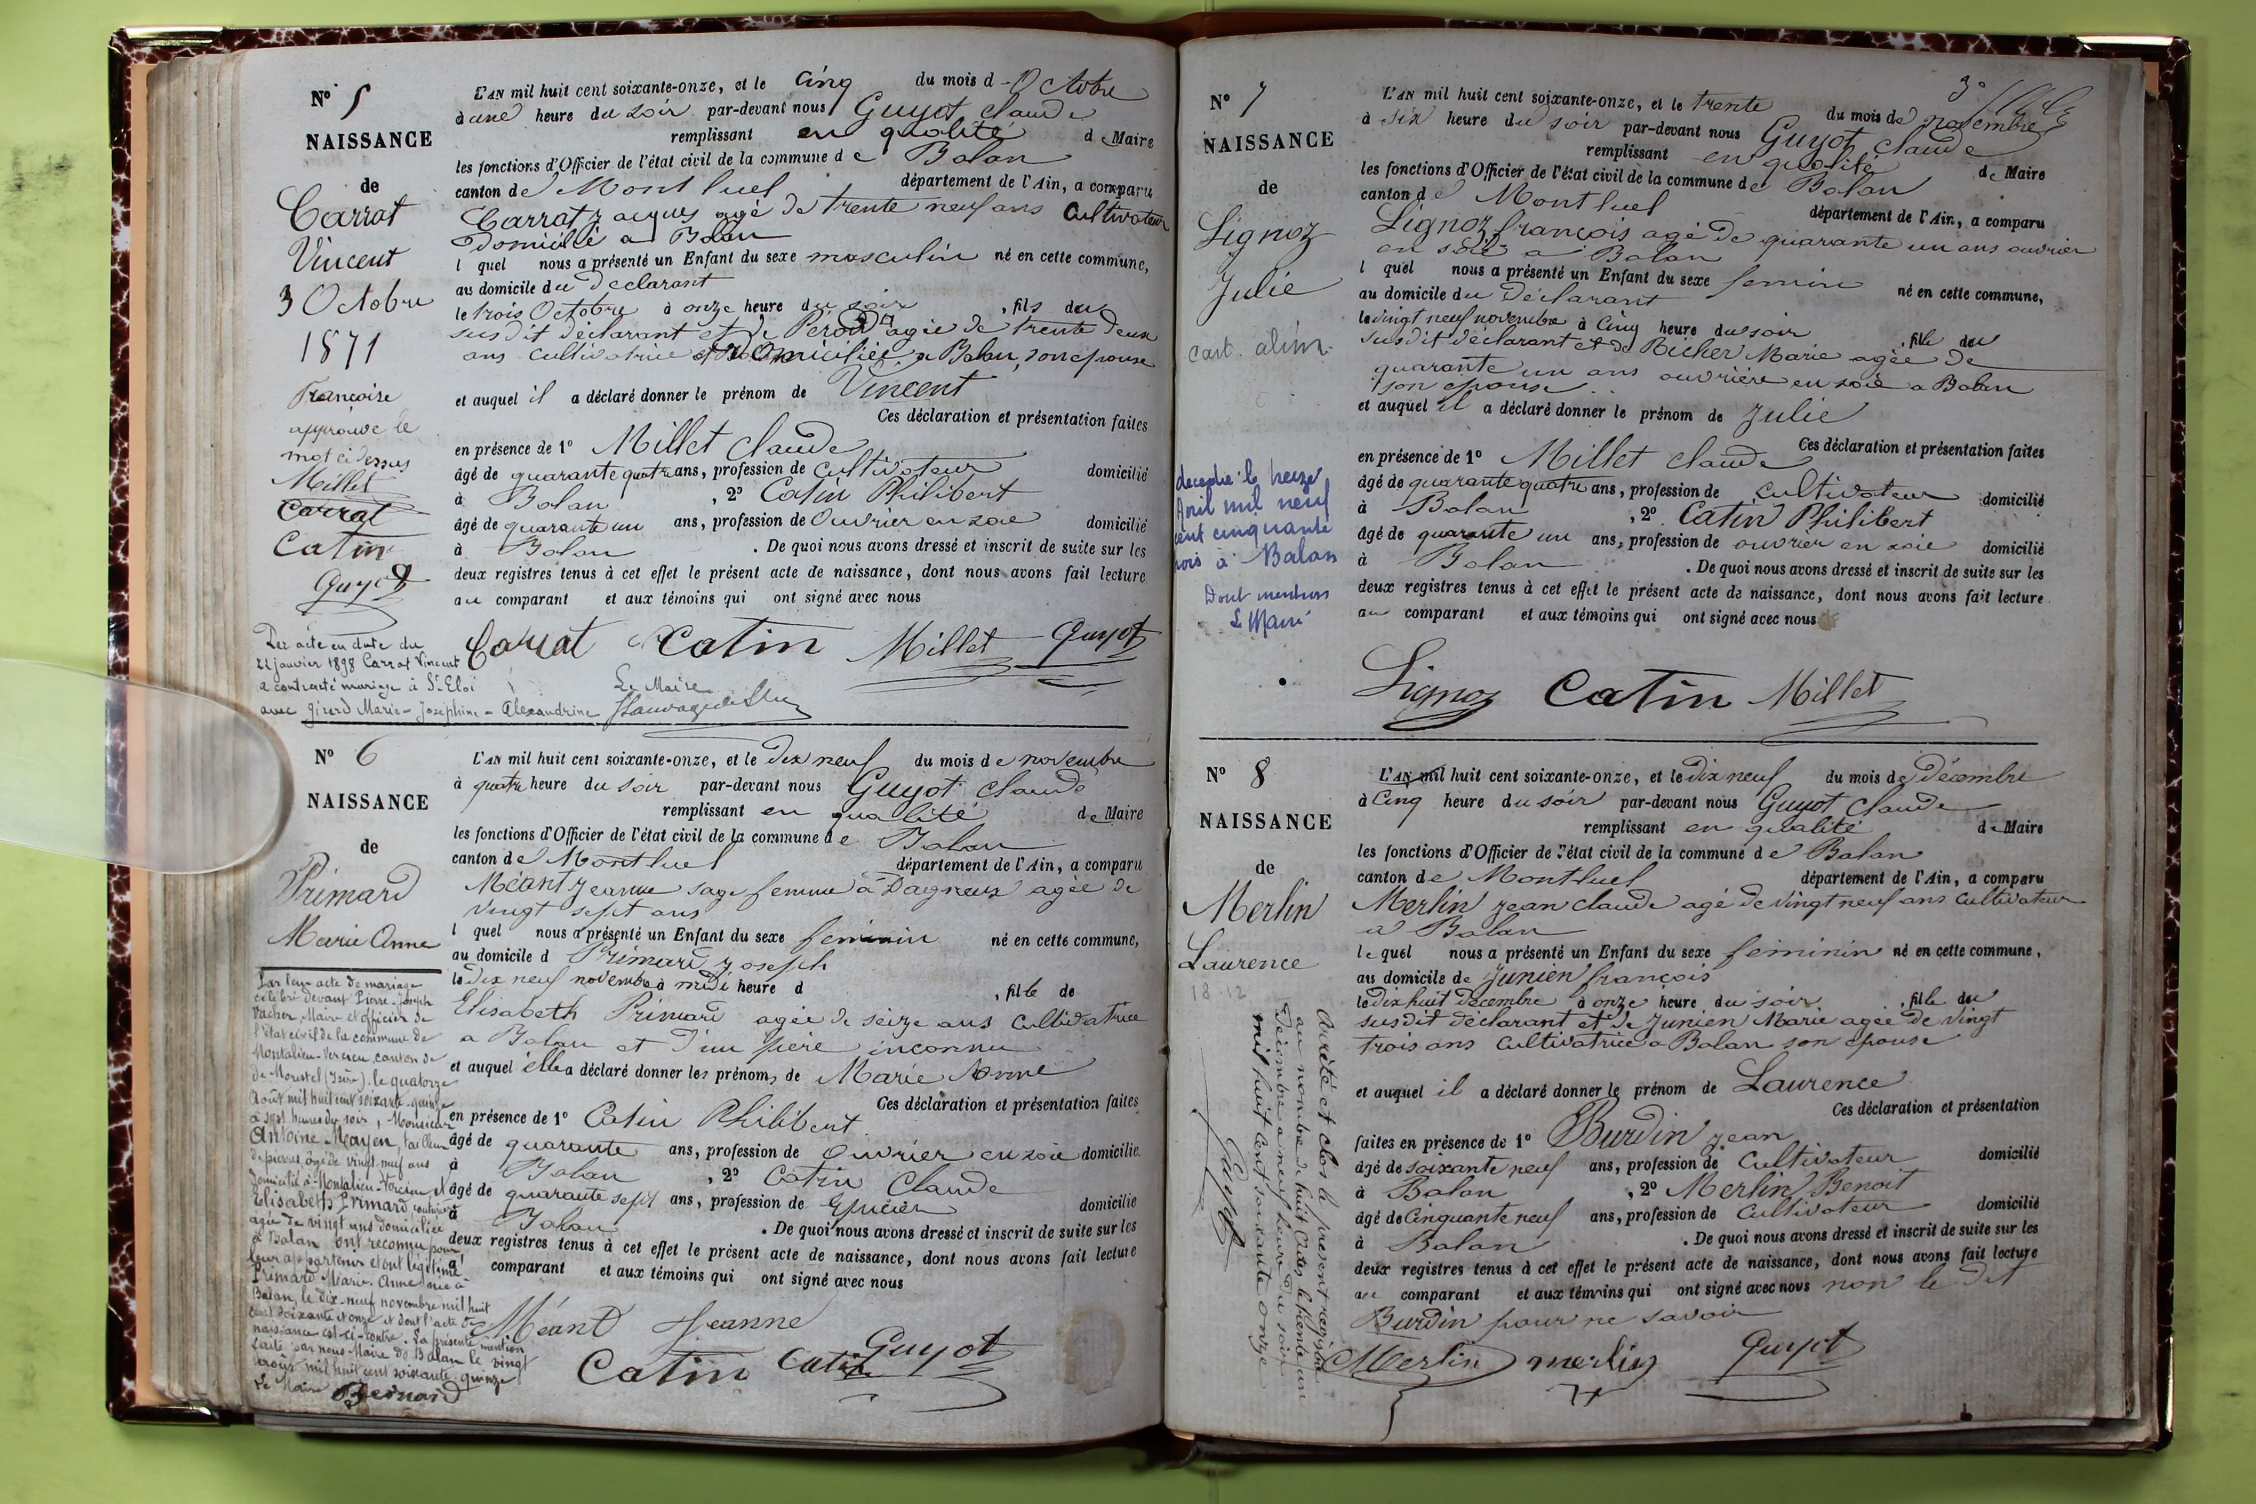 N° 5
NAISSANCE
de
Carrat
Vincent
3 Octobre
1871
Françoise
approuvé le
mot ci dessus
Millet
Carrat
Catin
Guyot
Par acte en date du
22 janvier 1898 Carrat Vincent
a contracté mariage à St Eloi
avec Girerd Marie-Josephine-Alexandrine
Le Maire
L'AN mil huit cent soixante-onze, et le cinq du mois d'Octobre
à une heure du soir par-devant nous Guyot Claude
remplissant en qualité de Maire
les fonctions d'Officier de l'état civil de la commune de Balan
canton de Montluel département de l'Ain, a comparu
Carrat Jacques agé de trente neuf ans Cultivateur
Domicilié a Balan
lequel nous a présenté un Enfant du sexe masculin né en cette commune,
au domicile du declarant
le trois Octobre à onze heure du soir, fils du
susdit déclarant et de Péron agée de trente deux
ans cultivatrice domiciliée a Balan, son epouse
et auquel il a déclaré donner le prénom de Vincent
Ces déclaration et présentation faites
en présence de 1° Millet Claude
âgé de quarante quatre ans, profession de cultivateur domicilié
à Balan, 2° Catin Philibert
âgé de quarante un ans, profession de Ouvrier en soie domicilié
à Balan. De quoi nous avons dressé et inscrit de suite sur les
deux registres tenus à cet effet le présent acte de naissance, dont nous avons fait lecture
au comparant et aux témoins qui ont signé avec nous
Carrat Catin Millet Guyot
N° 6
NAISSANCE
de
Primard
Marie Anne
Par leur acte de mariage
célébré devant Pierre-Joseph
Vacher, Maire et officier de
l'état civil de la commune de
Montalieu-Vercieu, canton de
de Morestel (Isère), le quatorze
Août mil huit cent soixante-quinze
à sept heures du soir, Monsieur
Antoine Mayen, tailleur
de pierres, âgé de vingt-neuf ans
domicilié à Montalieu-Vercieu, et
Elisabeth Primard couturière
agée de vingt ans domiciliée
à Balan ont reconnu pour
leur appartenir et ont légitimé
Primard Marie-Anne née à
Balan, le dix-neuf novembre mil huit
cent soixante et onze et dont l'acte de
naissance est ci-contre. La présente mention
faite par nous Maire de Balan le vingt
août mil huit cent soixante-quinze
Le Maire Bernard
L'AN mil huit cent soixante-onze, et le dix neuf du mois de novembre
à quatre heure du soir par-devant nous Guyot Claude
remplissant en qualité de Maire
les fonctions d'Officier de l'état civil de la commune de Balan
canton de Montluel département de l'Ain, a comparu
Méant Jeanne sage femme a Dagneux agée de
vingt sept ans
l quel nous a présenté un Enfant du sexe feminin né en cette commune,
au domicile d Primard Joseph
le dix neuf novembre à midi heure d , fille de
Elisabeth Primard agée de seize ans Cultivatrice
a Balan et d'un père inconnu
et auquel elle a déclaré donner les prénoms de Marie Anne
Ces déclaration et présentation faites
en présence de 1° Catin Philibert
âgé de quarante ans, profession de Ouvrier en soie domicilié
à Balan, 2° Catin Claude
âgé de quarante sept ans, profession de Epicier domicilié
à Balan. De quoi nous avons dressé et inscrit de suite sur les
deux registres tenus à cet effet le présent acte de naissance, dont nous avons fait lecture
a comparant et aux témoins qui ont signé avec nous
Méant Jeanne
Catin Catin Guyot
N° 7
NAISSANCE
de
Lignoz
Julie
cart. alim.
decedée le treize
Avril mil neuf
cent cinquante
trois à Balan
Dont mention
Le Maire
L'AN mil huit cent soixante-onze, et le trente du mois de novembre
à six heure du soir par-devant nous Guyot Claude
remplissant en qualité de Maire
les fonctions d'Officier de l'état civil de la commune de Balan
canton de Montluel département de l'Ain, a comparu
Lignoz françois agé de quarante un ans ouvrier
en soie a Balan
l quel nous a présenté un Enfant du sexe feminin né en cette commune,
au domicile du Déclarant
le vingt neuf novembre à Cinq heure du soir, fille du
susdit déclarant et de Richer Marie agée de
quarante un ans ouvrière en soie a Balan
son epouse
et auquel il a déclaré donner le prénom de Julie
Ces déclaration et présentation faites
en présence de 1° Millet Claude
âgé de quarante quatre ans, profession de cultivateur domicilié
à Balan, 2° Catin Philibert
âgé de quarante un ans, profession de ouvrier en soie domicilié
à Balan. De quoi nous avons dressé et inscrit de suite sur les
deux registres tenus à cet effet le présent acte de naissance, dont nous avons fait lecture
au comparant et aux témoins qui ont signé avec nous
Lignoz Catin Millet
N° 8
NAISSANCE
de
Merlin
Laurence
18-12
Arrêté et clos le présent registre
au nombre de huit Actes le trente un
decembre a neuf heure du soir
mil huit cent soixante onze
Guyot
L'AN mil huit cent soixante-onze, et le dix neuf du mois de décembre
à Cinq heure du soir par-devant nous Guyot Claude
remplissant en qualité de Maire
les fonctions d'Officier de l'état civil de la commune de Balan
canton de Montluel département de l'Ain, a comparu
Merlin Jean Claude agé de vingt neuf ans Cultivateur
a Balan
lequel nous a présenté un Enfant du sexe feminin né en cette commune,
au domicile de Junien françois
le dix huit décembre à onze heure du soir, fille du
susdit déclarant et de Junien Marie agée de vingt
trois ans Cultivatrice a Balan son epouse
et auquel il a déclaré donner le prénom de Laurence
Ces déclaration et présentation
faites en présence de 1° Burdin Jean
âgé de soixante neuf ans, profession de Cultivateur domicilié
à Balan, 2° Merlin Benoit
âgé de Cinquante neuf ans, profession de Cultivateur domicilié
à Balan. De quoi nous avons dressé et inscrit de suite sur les
deux registres tenus à cet effet le présent acte de naissance, dont nous avons fait lecture
au comparant et aux témoins qui ont signé avec nous non le dit
Burdin pour ne savoir
Merlin merlin Guyot